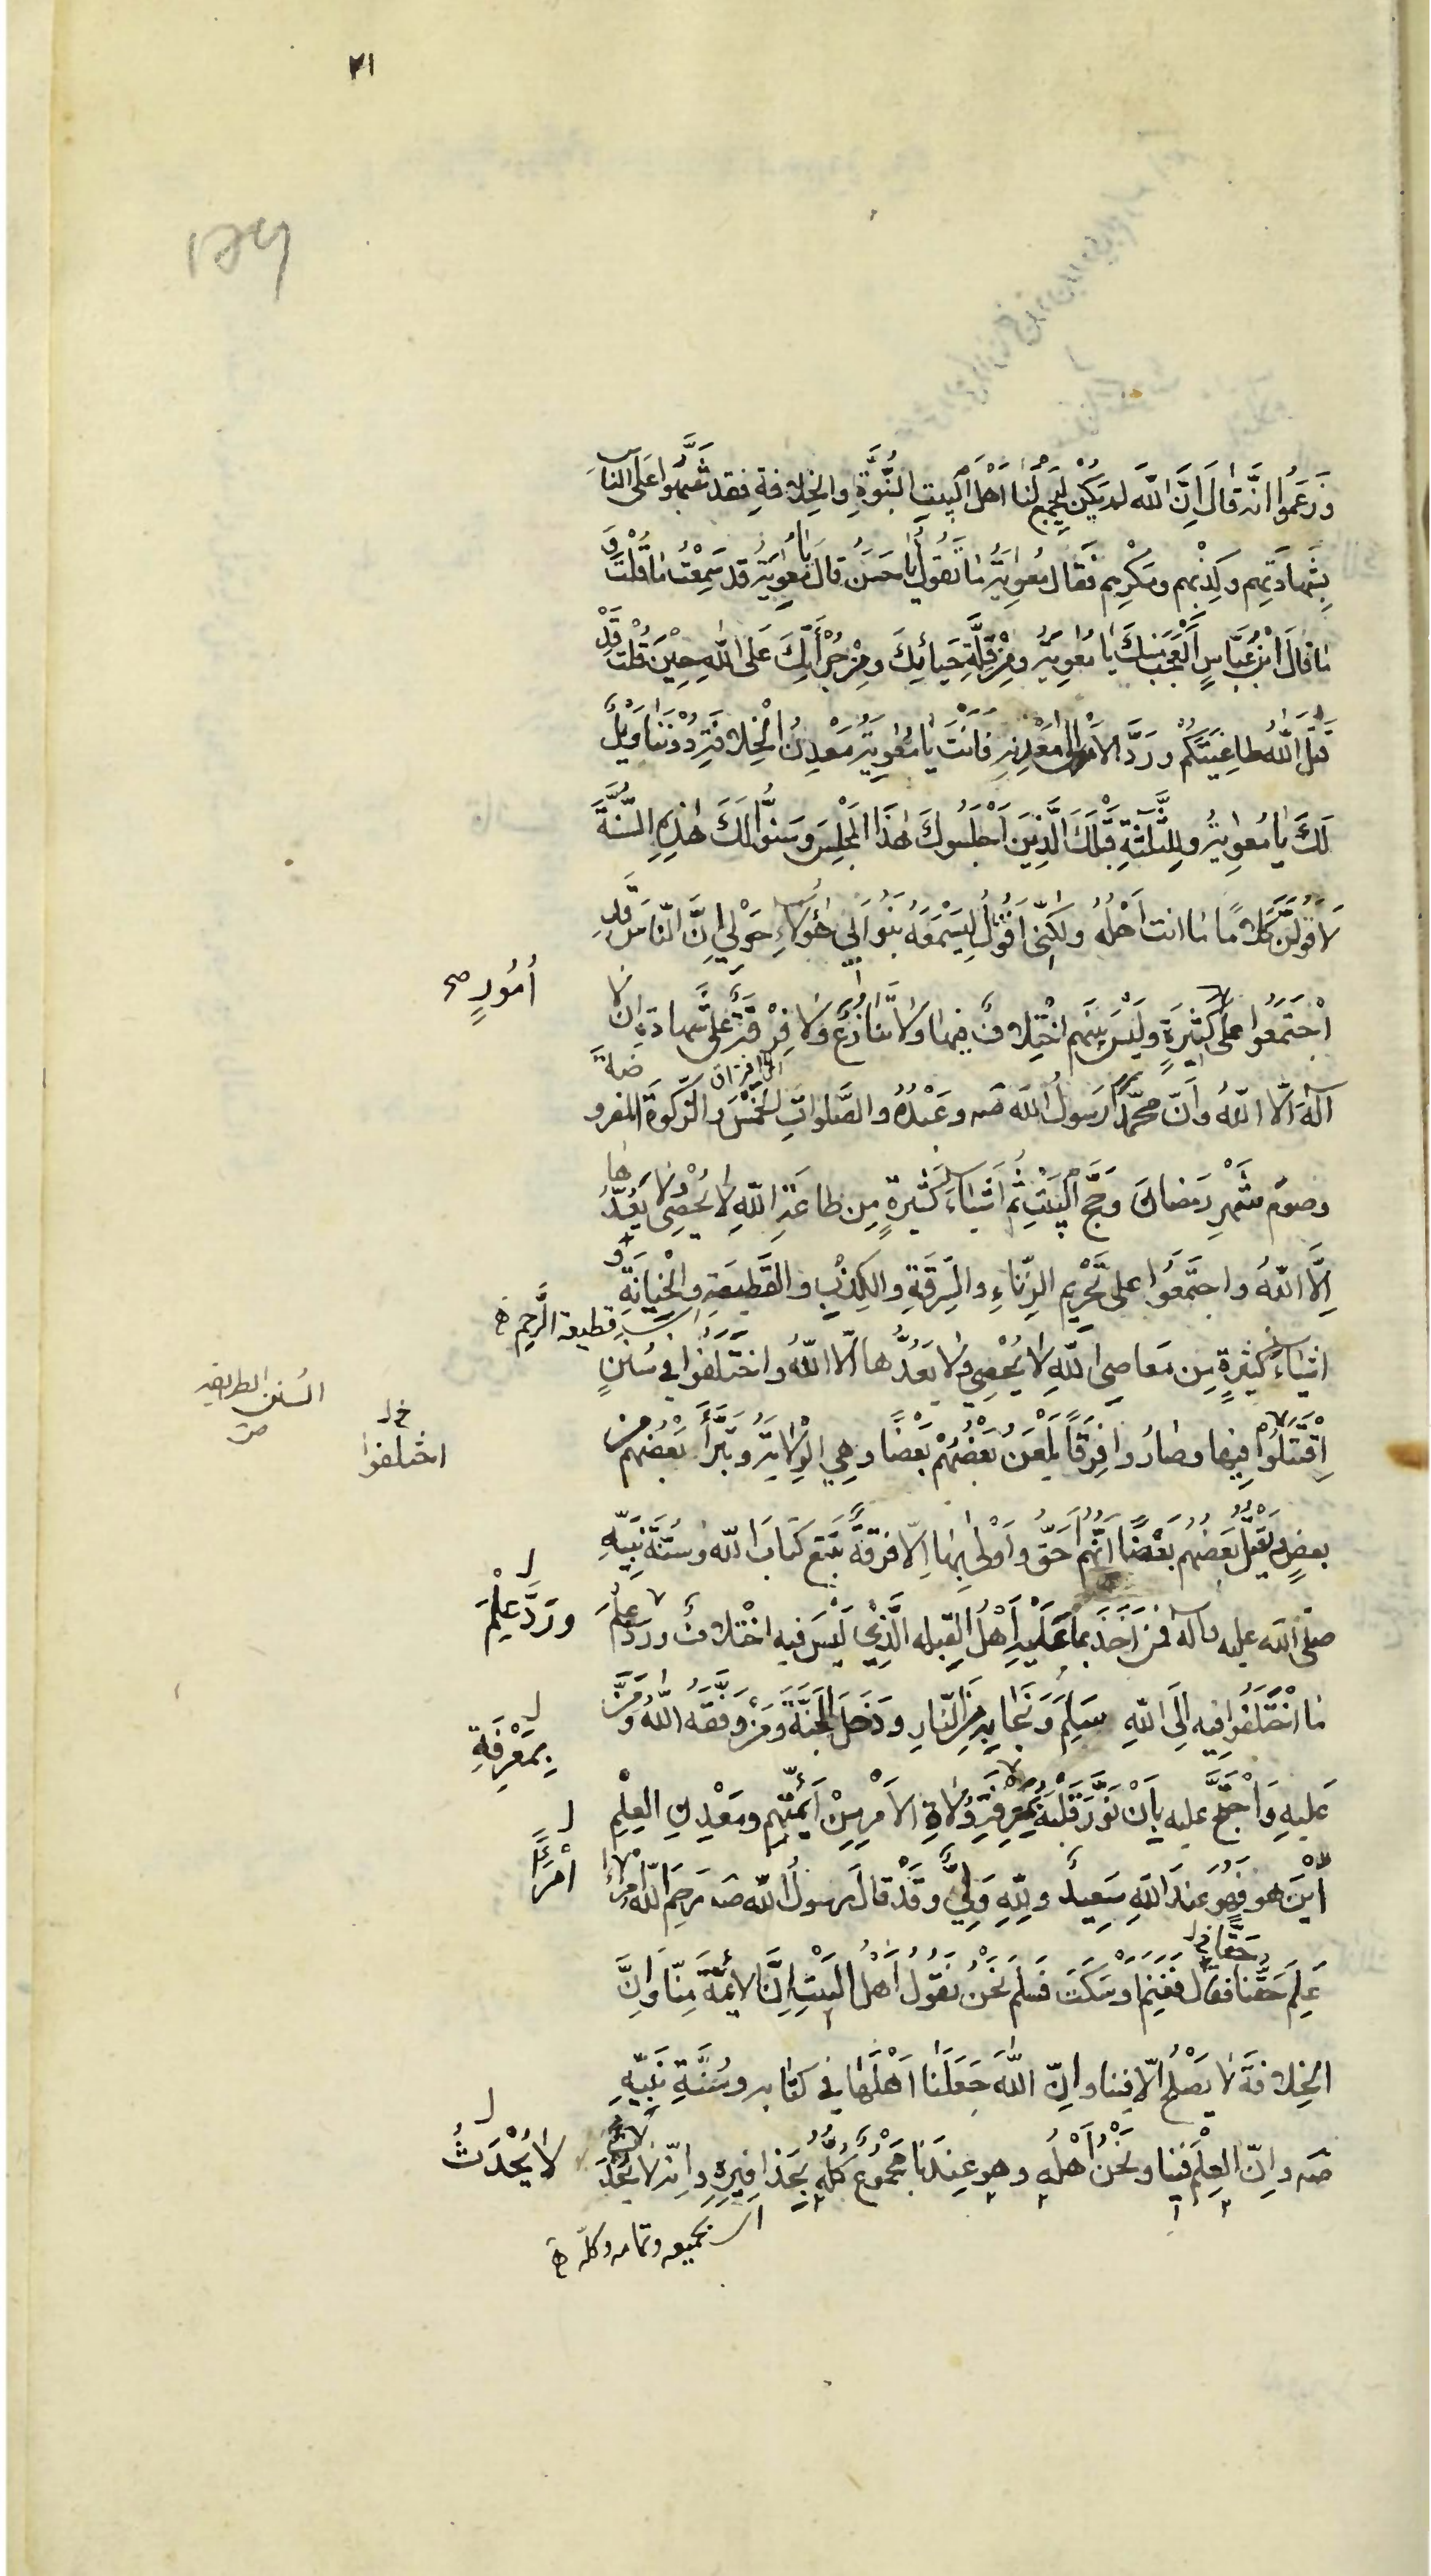 ٢١
وَزَعَمُوا انَّه قَالَ اِنَّ اللّٰهَ لَمْ يَكُنْ لِيَجْمَعَ لَنَا اَهْلَ الْبَيْتِ النُّبُوَّةِ والخِلافةِ فقد شَبَّهُوا عَلَى النَّاسِ
بِشَهادَتِهِم وكِذْبِهم ومَكْرِهِم فَقَال مُعٰوِيَةُ مٰا تَقُولُ يٰا حَسَنُ قالَ يٰا مُعٰوِيَةُ قد سَمِعْتُ مٰا قُلْتَ وَ
مٰا قالَ ابْنُ عَبَّاسٍ اَلْعَجَبُ مِنْكَ يٰا مُعٰوِيَةُ ومِنْ قِلَّةِ حَيائِكَ ومِنْ جُرْأَتِكَ عَلَى اللّٰهِ حِيْنَ قُلْتَ قَدْ
قَتَلَ اللّٰهُ طاغِيَتَكُمْ ورَدَّ الاَمْرَ الىٰ مَعْدِنِه فَاَنْتَ يٰا مُعٰوِيَةُ مَعْدِنُ الْخِلافَةِ دُوْنَنٰا وَيْلٌ
لَكَ يٰا مُعٰوِيَةُ ولِلثَّلٰثَةِ قَبْلَكَ الَّذِيْنَ اَجْلَسُوكَ هٰذَا الْمَجْلِسَ وسَنُّوا لَكَ هٰذِهِ السُّنَّةَ
لَاَقُولَنَّ كَلامًا مٰا انت اَهْلُهُ ولٰكِنّى اَقُولُ لِيَسْمَعَهُ بَنُو اَبِي هٰؤلاءِ حَوْلِي اِنَّ النّاسَ قَدِ
اجْتَمَعُوا على كَثِيْرَةٍ ولَيْسَ بينَهم اخْتِلافٌ فيها ولا تَنازُعٌ ولا فِرْقَةٌ على شَهادَةِ ان لا
اُمُورٍ صح
اى افتراق
اِلٰهَ اِلّا اللّٰهُ وَاَنَّ مُحمَّدًا رَسُولُ اللّٰهِ صه وعَبْدُهُ والصَّلَواتِ الخَمْسِ والزَّكٰوةِ المفروضةِ
وصومِ شَهْرِ رَمَضانَ وحَجِّ الْبَيْتِ ثُمَّ اَشْيٰاءَ كَثِيْرةٍ مِن طاعَةِ اللّٰهِ لا يُحْصىٰ ولا يَعُدُّها
اِلَّا اللّٰهُ واجتَمَعُوا على تَحْرِيْمِ الزِّناءِ والسِّرقَةِ والكِذْبِ والقَطِيعَةِ والْخِيانَةِ و
اى قطيعة الرَّحِم
اشياءَ كثيرةٍ مِن مَعاصِى اللّٰهِ لا يُحْصىٰ ولا يَعُدُّها الّا اللّٰهُ واخْتَلَفُوا فى سُنَنٍ
السنن الطريقه
اِقْتَتَلُوا فيها وصٰارُوا فِرَقًا يَلْعَنُ بَعْضُهُمْ بَعْضًا وهِي الوِلايَةُ ويَتَبَرَّأُ بَعْضُهم مِن
اختلفوا
بعضٍ ويَقْتُلُ بَعْضُهُم بَعْضًا اَيُّهُمْ اَحَقُّ وَاَوْلىٰ بِهٰا اِلّا فرقةً تَتَّبِعُ كتابَ اللّٰهِ وسُنَّةَ نَبِيِّهِ
صلّى اللّٰه عليه وآله فمَن اَخَذَ بما عَلَيْهِ اَهْلُ القِبلة الَّذِيْ لَيْسَ فيه اخْتلافٌ ورَدَّ عِلْمَ
ورَدَّ عِلْمَ
مٰا اخْتَلَفُوا فِيه اِلَى اللّٰهِ سَلِمَ وَنَجٰا بِهِ مِنَ النّارِ ودَخَلَ الْجَنَّةَ ومَنْ وَفَّقَهُ اللّٰهُ ومَنَّ
بِمَعْرِفَةِ
عَليهِ وَاحْتَجَّ عليه بِاَنْ نَوَّرَ قَلْبَهُ بمَعرِفَةِ وُلاةِ الاَمْرِ مِنْ اَئِمَّتِهِم ومَعْدِنِ العِلْمِ
اَيْنَ هو فهو عندَ اللّٰهِ سَعِيدٌ ولِلّٰهِ وَلِيٌّ وقَدْ قالَ رسولُ اللّٰه صه رَحِمَ اللّٰهُ امْرَأً
امْرَأً
حَقًّا
عَلِمَ حَقَّنا فَقال فَغَنِمَ اَوْ سَكَتَ فسَلِمَ نَحْنُ نَقُولُ اَهْلُ البَيْتِ اِنَّ الأئمَّةَ مِنّا وَاِنَّ
الخِلافةَ لا يَصْلُحُ اِلّا فينا واِنّ اللّٰهَ جَعَلَنا اَهْلَهٰا في كتابِه وسُنَّةِ نَبِيِّهِ
صه واِنّ العِلْمَ فِينا ونَحْنُ اَهْلُه وهو عِندَنا مَجْمُوعٌ كُلُّهُ بِحَذافِيْرِه واِنّه لا يَحْدُثُ
لا يُحْدَثُ
اى بجميعه وتمامه وكلّه